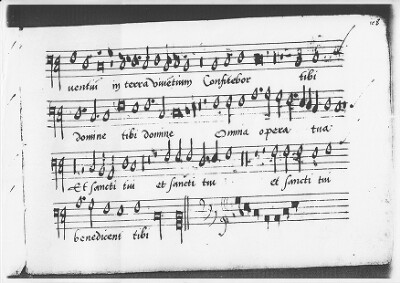 in terra viventium Confitebor tibi
Domine tibi Domine Omnia opera tua
Et sancti tui et sancti tui et sancti tui
benedicent tibi